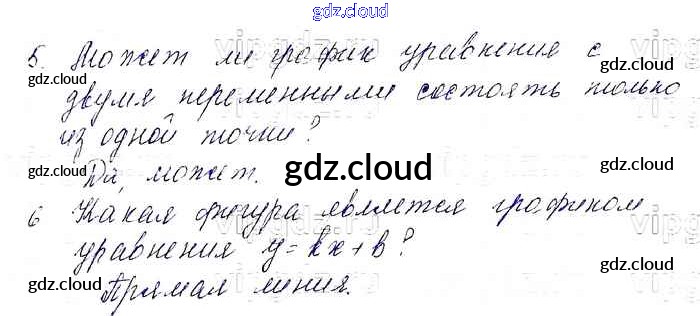 gdz.cloud
5. Может ли график уравнения с
двумя переменными состоять только
из одной точки?
Да, может.
6 Какая фигура является графиком
уравнения y=kx+b?
Прямая линия.
gdz.cloud
gdz.cloud
gdz.cloud
gdz.cloud
gdz.cloud
gdz.cloud
gdz.cloud
gdz.cloud
gdz.cloud
gdz.cloud